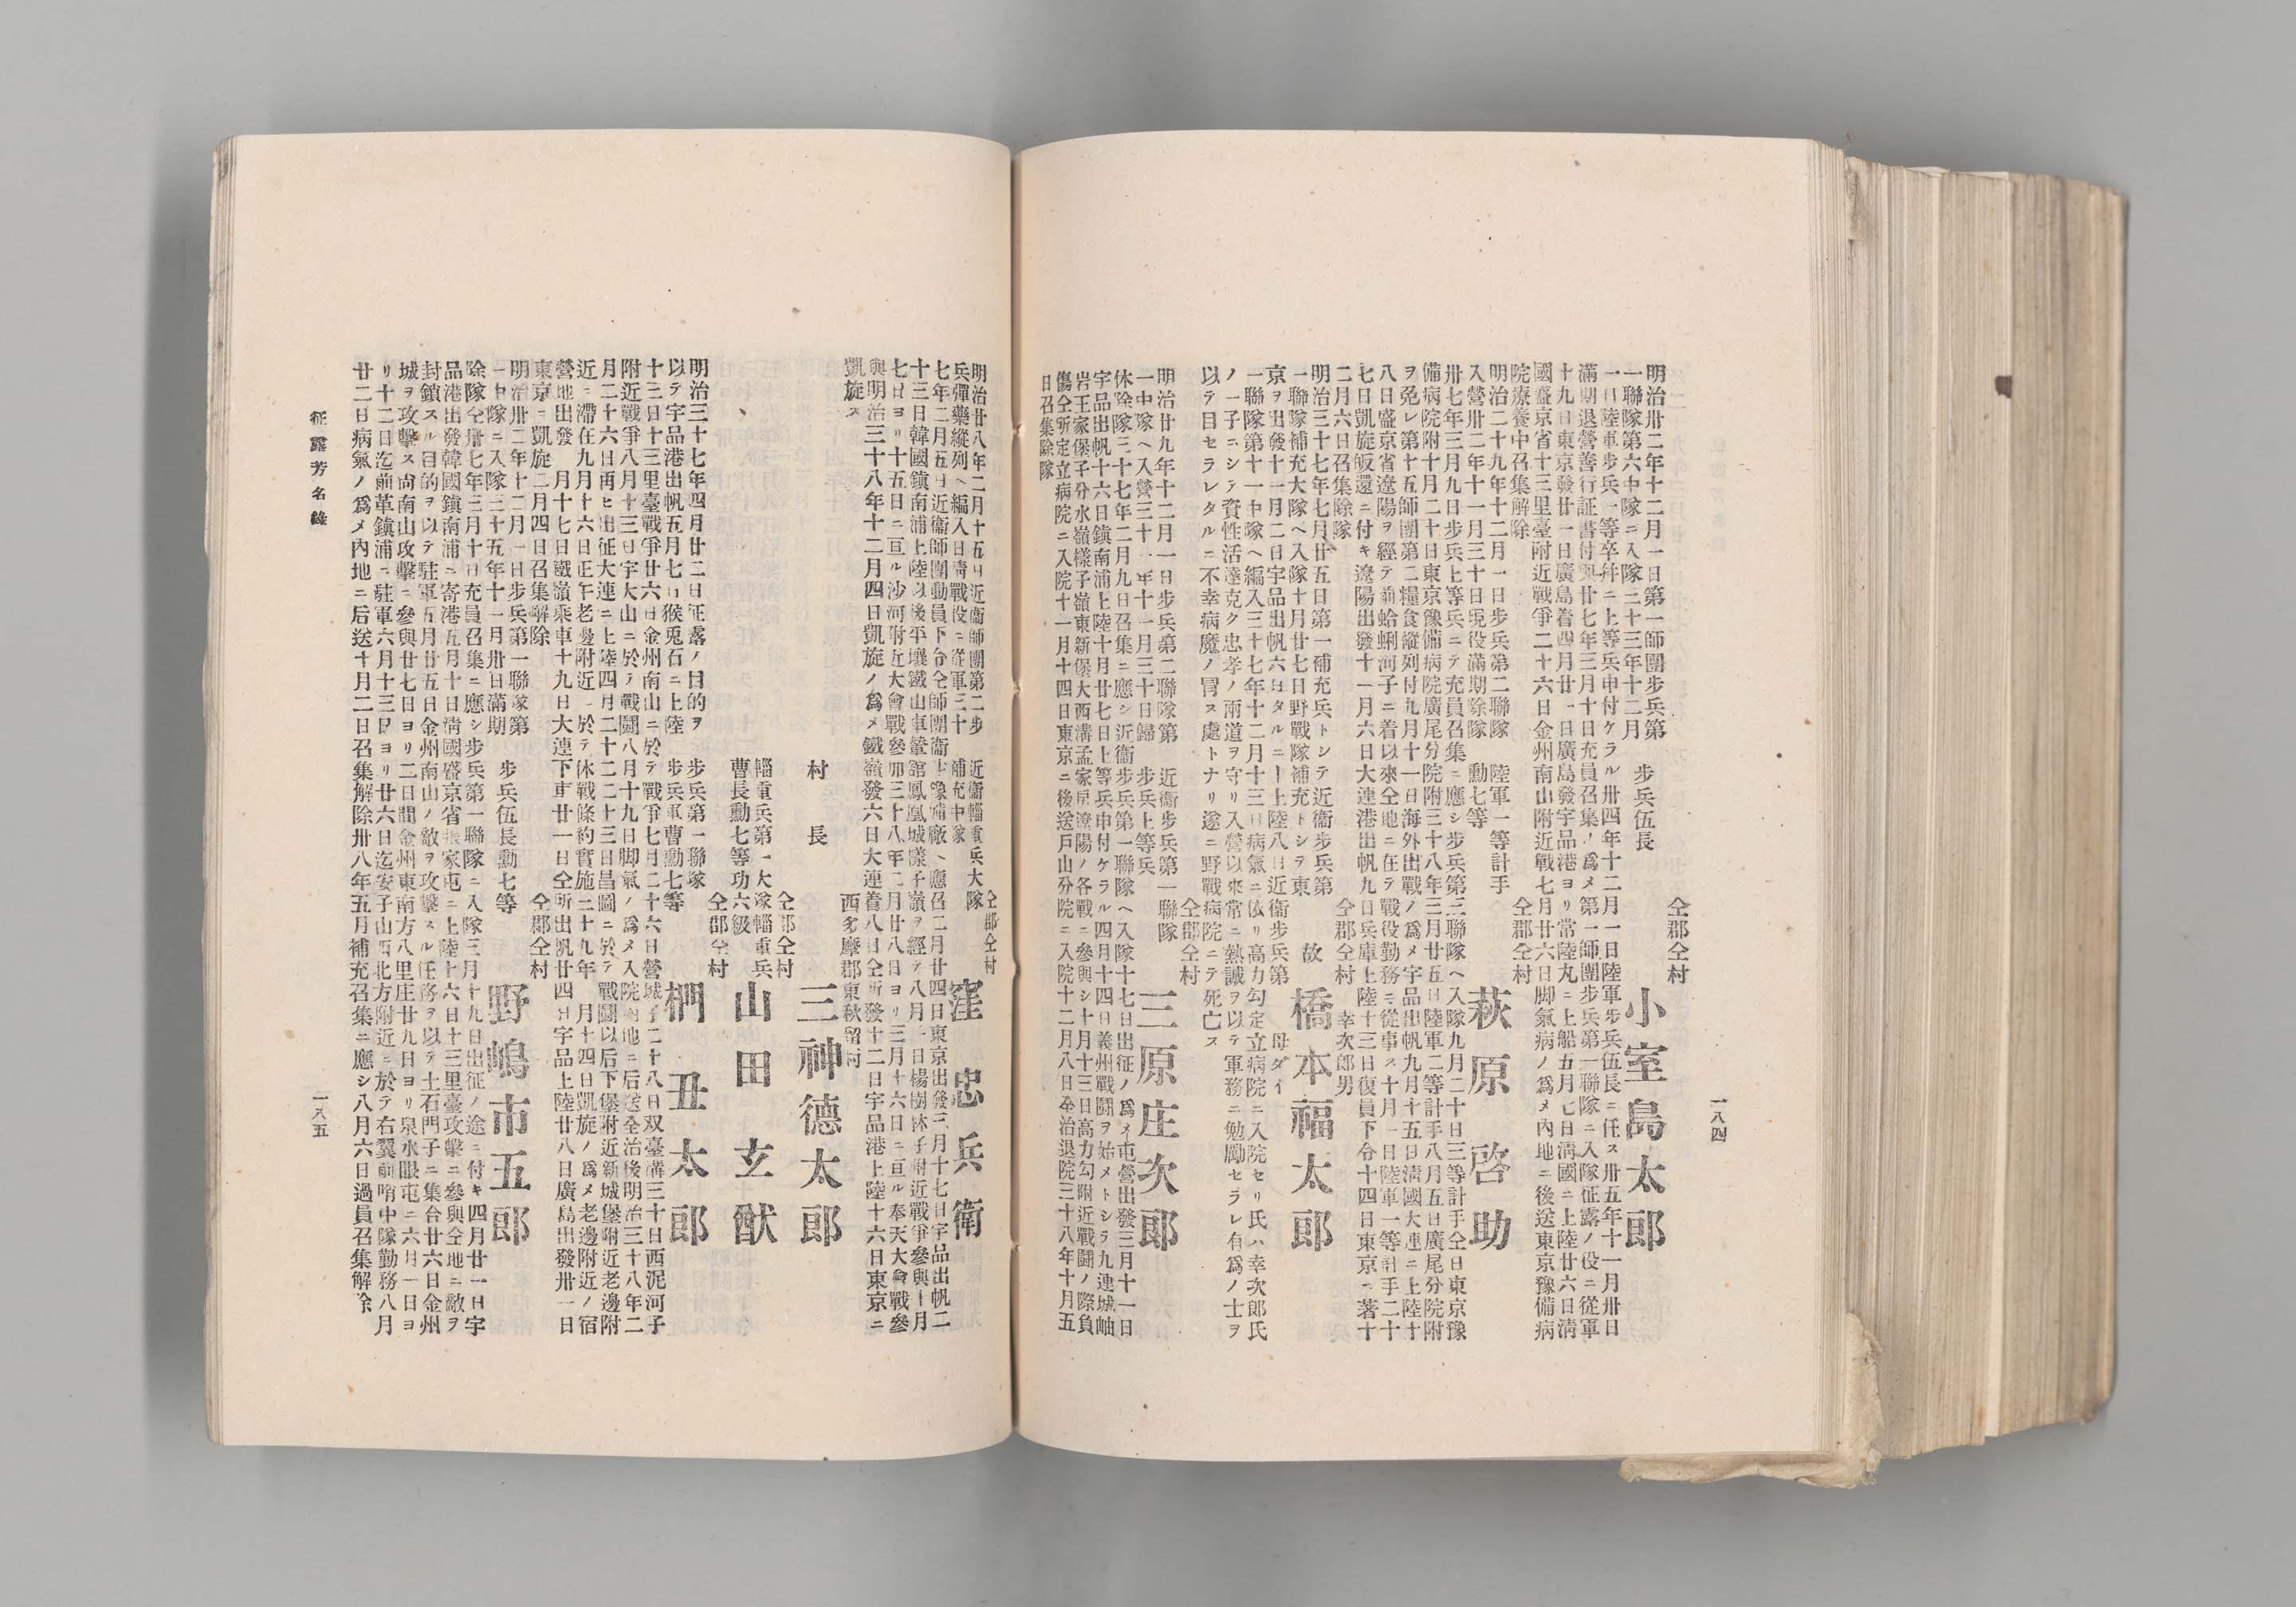 一八四
仝郡仝村
小室島太郎
歩兵伍長
明治卅二年十二月一日第一師團歩兵第
一聯隊第六中隊ニ入隊三十三年十二月
一日陸軍歩兵一等卒幷ニ上等兵申付ケラル卅四年十二月一日陸軍歩兵伍長ニ任ス卅五年十一月卅日
滿期退營善行証書付與廿七年三月十日充員召集ノ爲メ第一師團歩兵第一聯隊ニ入隊征露ノ役ニ從軍
十九日東京發廿一日廣島着四月廿一日廣島發宇品港ヨリ常陸丸ニ上船五月七日淸國ニ上陸廿六日淸
國盛京省十三里臺附近戰爭二十六日金州南山附近戰七月廿六日脚氣病ノ爲メ内地ニ後送東京豫備病
院療養中召集解除
仝郡仝村
萩原啓助
陸軍一等計手
勳七等
明治二十九年十二月一日歩兵第二聯隊
入營卅二年十一月三十日現役滿期除隊
卅七年三月九日歩兵上等兵ニテ充員召集ニ應シ歩兵第三聯隊ヘ入隊九月二十日三等計手仝日東京豫
備病院附十月二十日東京豫備病院廣尾分院附三十八年三月廿五日陸軍二等計手八月五日廣尾分院附
ヲ免レ第十五師團第二糧食縱列付九月十一日海外出戰ノ爲メ宇品出帆九月十五日淸國大連ニ上陸十
八日盛京省遼陽ヲ經テ蛤蜊河子ニ着以來仝地ニ在テ戰役勤務ニ從事ス十月一日陸軍一等計手二十
七日凱旋皈還ニ付キ遼陽出發十一月六日大連港出帆九日兵庫上陸十三日復員下令十四日東京ニ著十
二月六日召集除隊
仝郡仝村
幸次郎男
故
橋本福太郎
母ダイ
明治三十七年七月廿五日第一補充兵トシテ近衞歩兵第
一聯隊補充大隊ヘ入隊十月廿七日野戰隊補充トシテ東
京ヲ出發十一月二日宇品出帆六日タルニー上陸八日近衞歩兵第
一聯隊第十一中隊ヘ編入三十七年十二月十三日病氣ニ依リ高力勾定立病院ニ入院セリ氏ハ幸次郎氏
ノ一子ニシテ資性活達克ク忠孝ノ兩道ヲ守リ入營以來常ニ熱誠ヲ以テ軍務ニ勉勵セラレ有爲ノ士ヲ
以テ目セラレタルニ不幸病魔ノ冒ス處トナリ遂ニ野戰病院ニテ死亡ス
仝郡仝村
三原庄次郎
近衞歩兵第一聯隊
歩兵上等兵
明治廿九年十二月一日歩兵第二聯隊第
一中隊ヘ入營三十一年十一月三十日歸
休除隊三十七年二月九日召集ニ應シ近衞歩兵第一聯隊ヘ入隊十七日出征ノ爲メ屯營出發三月十一日
宇品出帆十六日鎭南浦上陸十月廿七日上等兵申付ケラル四月十四日義州戰鬪ヲ始メトシラ九連城岫
岩王家堡子分水嶺樣子嶺東新堡大西溝孟家房遼陽ノ各戰ニ參與シ十月十三日高力勾附近戰鬪ノ際負
傷仝所定立病院ニ入院十一月十四日東京ニ後送戸山分院ニ入院十二月八日全治退院三十八年十月五
日召集除隊
仝郡仝村
窪忠兵衛
近衞輜重兵大隊
補充中隊
明治廿八年二月十五日近衞師團第二歩
兵彈藥縱列ヘ編入日淸戰役ニ從軍三十
七年二月五日近衞師團動員下令仝師團衞生豫備廠ヘ應召二月廿四日東京出發三月十七日宇品出帆二
十三日韓國鎭南浦上陸以後平壤鐵山車輦舘鳳凰城樣子嶺ヲ經テ八月一日楊樹林子附近戰爭參與十月
七日ヨリ十五日ニ亘ル沙河附近大會戰參加三十八年二月廿八日ヨリ三月十六日ニ亘ル奉天大會戰參
與明治三十八年十二月四日凱旋ノ爲メ鐵嶺發六日大連着八日仝所發十二日宇品港上陸十六日東京ニ
凱旋ス
西多摩郡東秋留村
村長
三神德太郎
仝郡仝村
輜重兵第一大隊輜重兵
曹長勳七等功六級
山田玄猷
仝郡仝村
椚丑太郎
歩兵第一聯隊
歩兵軍曹勳七等
明治三十七年四月廿二日征露ノ目的ヲ
以テ宇品港出帆五月七日猴兎石ニ上陸
十三日十三里臺戰爭廿六日金州南山ニ於テ戰爭七月二十六日營城子二十八日双臺溝三十日西泥河子
附近戰爭八月十三日宇大山ニ於テ戰鬪八月十九日脚氣ノ爲メ入院内地ニ后送全治後明治三十八年二
月二十六日再ヒ出征大連ニ上陸四月二十二二十三日昌圖ニ於テ戰鬪以后下堡附近新城堡附近老邊附
近ニ滯在九月十六日正午老邊附近ニ於テ休戰條約實施二十九年一月十四日凱旋ノ爲メ老邊附近ノ宿
營地出發一月十七日鐵嶺乘車十九日大連下車廿一日仝所出帆廿四日宇品上陸廿八日廣島出發卅一日
東京ニ凱旋二月四日召集解除
仝郡仝村
野嶋市五郎
歩兵伍長勳七等
明治卅二年十二月一日歩兵第一聯隊第
一中隊ニ入隊三十五年十一月卅日滿期
除隊仝卅七年三月十日充員召集ニ應シ歩兵第一聯隊ニ入隊三月十九日出征ノ途ニ付キ四月廿一日宇
品港出發韓國鎭南浦ニ寄港五月十日淸國盛京省張家屯ニ上陸十六日十三里臺攻擊ニ參與仝地ニ敵ヲ
封鎖スル目的ヲ以テ駐軍五月廿五日金州南山ノ敵ヲ攻擊スル任務ヲ以テ土石門子ニ集合廿六日金州
城ヲ攻擊ス尚南山攻擊ニ參與廿七日ヨリ二日間金州東南方八里庄廿九日ヨリ泉水眼屯ニ六月一日ヨ
リ十二日迄前革鎭浦ニ駐軍六月十三日ヨリ廿六日迄安子山西北方附近ニ於テ右翼前哨中隊勤務八月
廿二日病氣ノ爲メ内地ニ后送十月二日召集解除卅八年五月補充召集ニ應シ八月六日過員召集解除
征露芳名錄
一八五